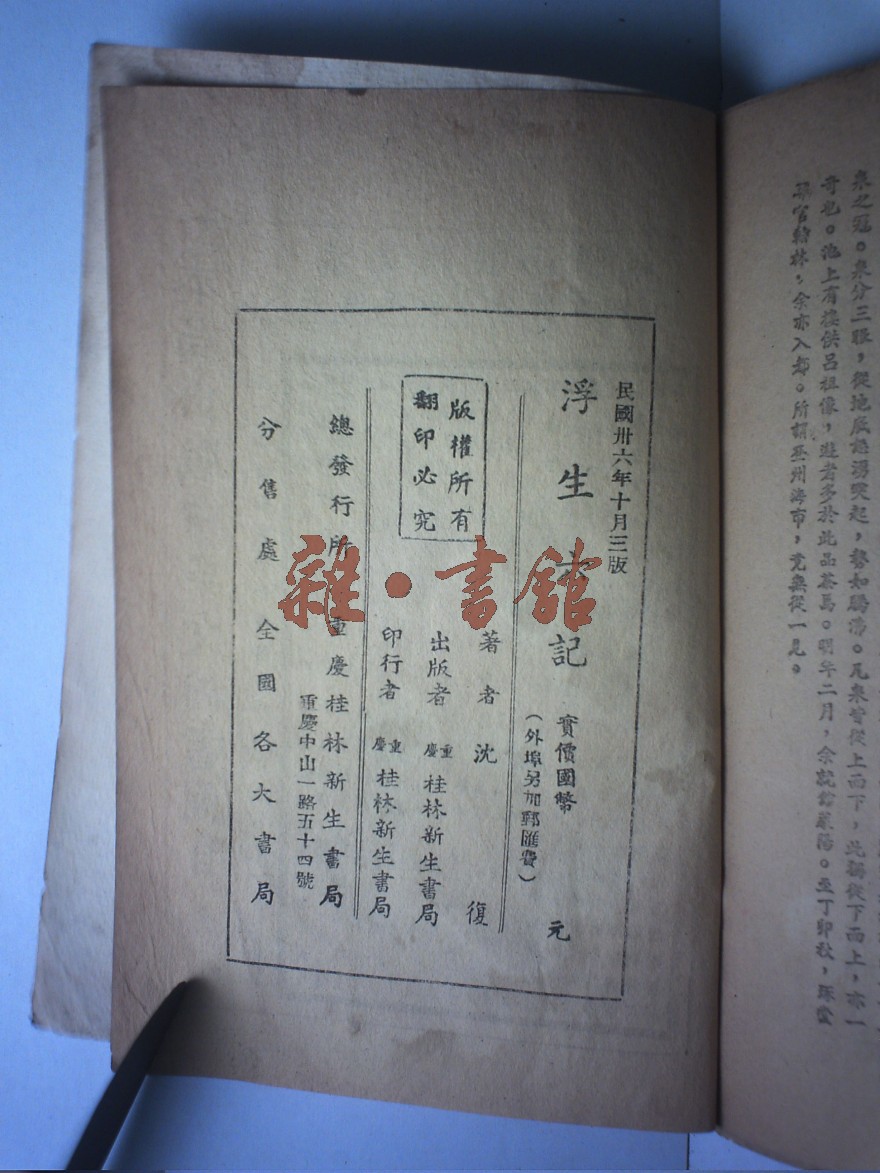 泉之冠。泉分三眼，從地底怒湧突起，勢如騰沸。凡泉皆從上而下，此獨從下而上，亦一
奇也。池上有樓供呂祖像，遊者多於此品茶焉。明年二月，余就館萊陽。至丁卯秋，琢堂
降官翰林，余亦入都。所謂登州海市，竟無從一見。
民國卅六年十月三版
浮生六記 實價國幣 元
（外埠另加郵匯費）
版權所有
翻印必究
著者 沈復
出版者 重慶 桂林新生書局
印行者 重慶 桂林新生書局
總發行所 重慶桂林新生書局
重慶中山一路五十四號
分售處 全國各大書局
雜·書館